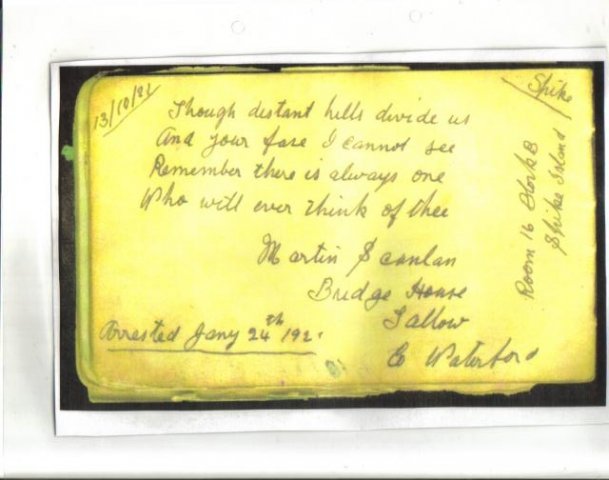 13/10/21
Spike
Though distant hills divide us
And your face I cannot see
Remember there is always one
Who will ever think of thee
Martin Scanlan
Bridge House
Tallow
Co Waterford
Arrested Jany 24th 192
Room 16 Block B
Spike Island